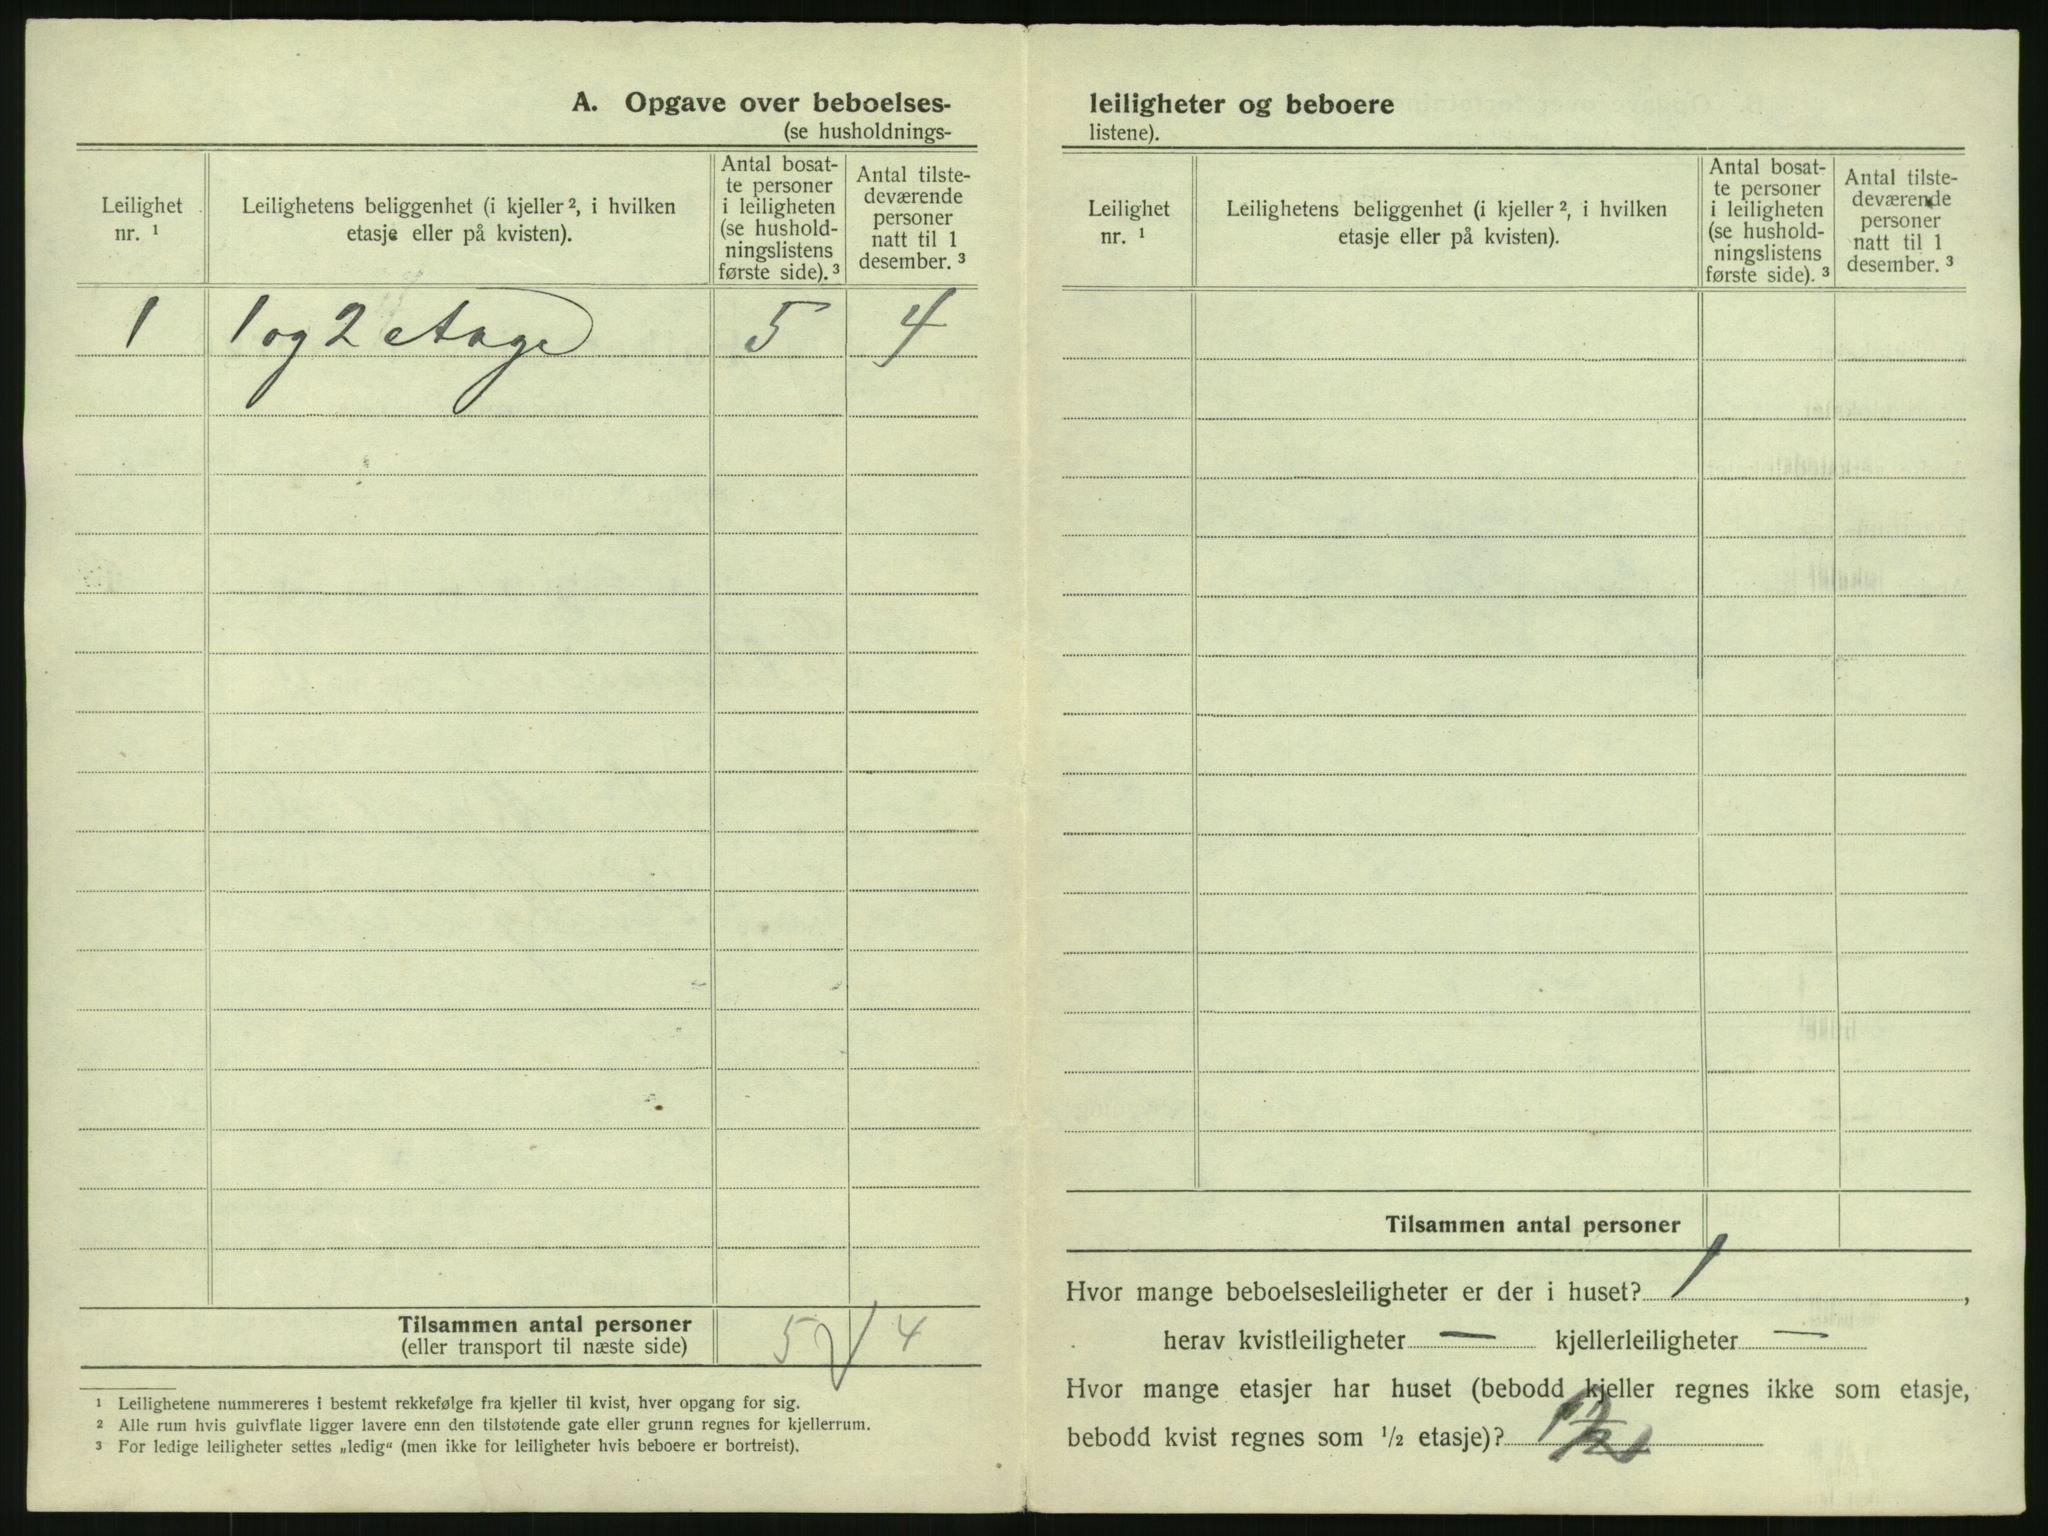 A. Opgave over beboelses-
(se husholdnings-
Leilighet
nr. ¹
Leilighetens beliggenhet (i kjeller ², i hvilken
etasje eller på kvisten).
Antal bosat-
te personer
i leiligheten
(se hushold-
ningslistens
første side). ³
Antal tilste-
deværende
personer
natt til 1
desember. ³
1 1 og 2 etage 5 4
Tilsammen antal personer
(eller transport til næste side)
5 4
¹ Leilighetene nummereres i bestemt rekkefølge fra kjeller til kvist, hver opgang for sig.
² Alle rum hvis gulvflate ligger lavere enn den tilstøtende gate eller grunn regnes for kjellerrum.
³ For ledige leiligheter settes „ledig“ (men ikke for leiligheter hvis beboere er bortreist).
leiligheter og beboere
listene).
Leilighet
nr. ¹
Leilighetens beliggenhet (i kjeller ², i hvilken
etasje eller på kvisten).
Antal bosat-
te personer
i leiligheten
(se hushold-
ningslistens
første side). ³
Antal tilste-
deværende
personer
natt til 1
desember. ³
Tilsammen antal personer
Hvor mange beboelsesleiligheter er der i huset? 1,
herav kvistleiligheter — kjellerleiligheter —
Hvor mange etasjer har huset (bebodd kjeller regnes ikke som etasje,
bebodd kvist regnes som 1/2 etasje)?